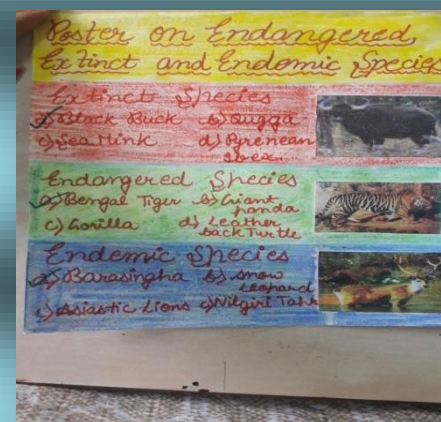 Poster on Endangered,
Extinct and Endemic Species
Extinct Species
a) Black Buck b) Qugga
c) Sea Mink d) Pyrenean
Ibex
Endangered Species
a) Bengal Tiger b) Giant
panda
c) Gorilla d) Leather
back Turtle
Endemic Species
a) Barasingha b) snow
leopard
c) Asiastic Lions d) Nilgiri Tahr